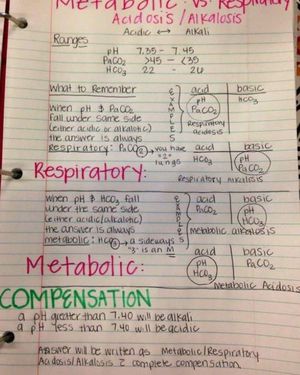 Metabolic vs Respiratory
Acidosis / Alkalosis
Acidic ↔ Alkali
Ranges
pH 7.35 - 7.45
PaCO2 >45 - <35
HCO3 22 - 26
What to Remember
when pH & PaCO2
fall under same side
(either acidic or alkalotic)
the answer is always
Respiratory: PaCO2 → you have
"2"
lungs
EXAMPLES
acid basic
pH HCO3
PaCO2
Respiratory
acidosis
acid basic
HCO3 pH
PaCO2
Respiratory alkalosis
Respiratory:
when pH & HCO3 fall
under the same side
(either acidic/alkalotic)
the answer is always
metabolic: HCO3 → a sideways
"3" is an M
EXAMPLES
acid basic
PaCO2 pH
HCO3
Metabolic alkalosis
acid basic
pH PaCO2
HCO3
Metabolic Acidosis
Metabolic:
COMPENSATION
a pH greater than 7.40 will be alkali
a pH less than 7.40 will be acidic
Answer will be written as Metabolic/Respiratory
Acidosis/Alkalosis c complete compensation.